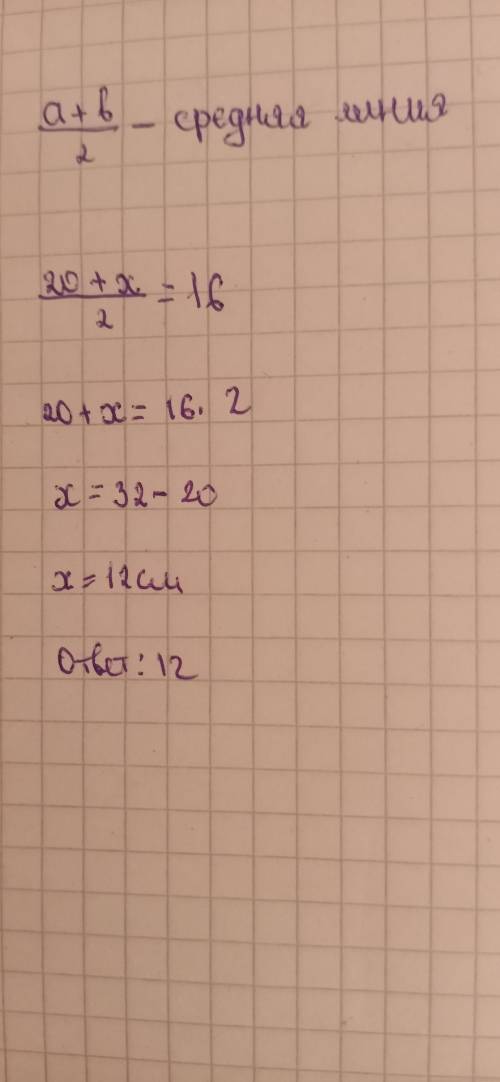 a+b/2 – средняя линия
20+x/2 = 16
20+x= 16. 2
x=32- 20
x=12см
Ответ: 12